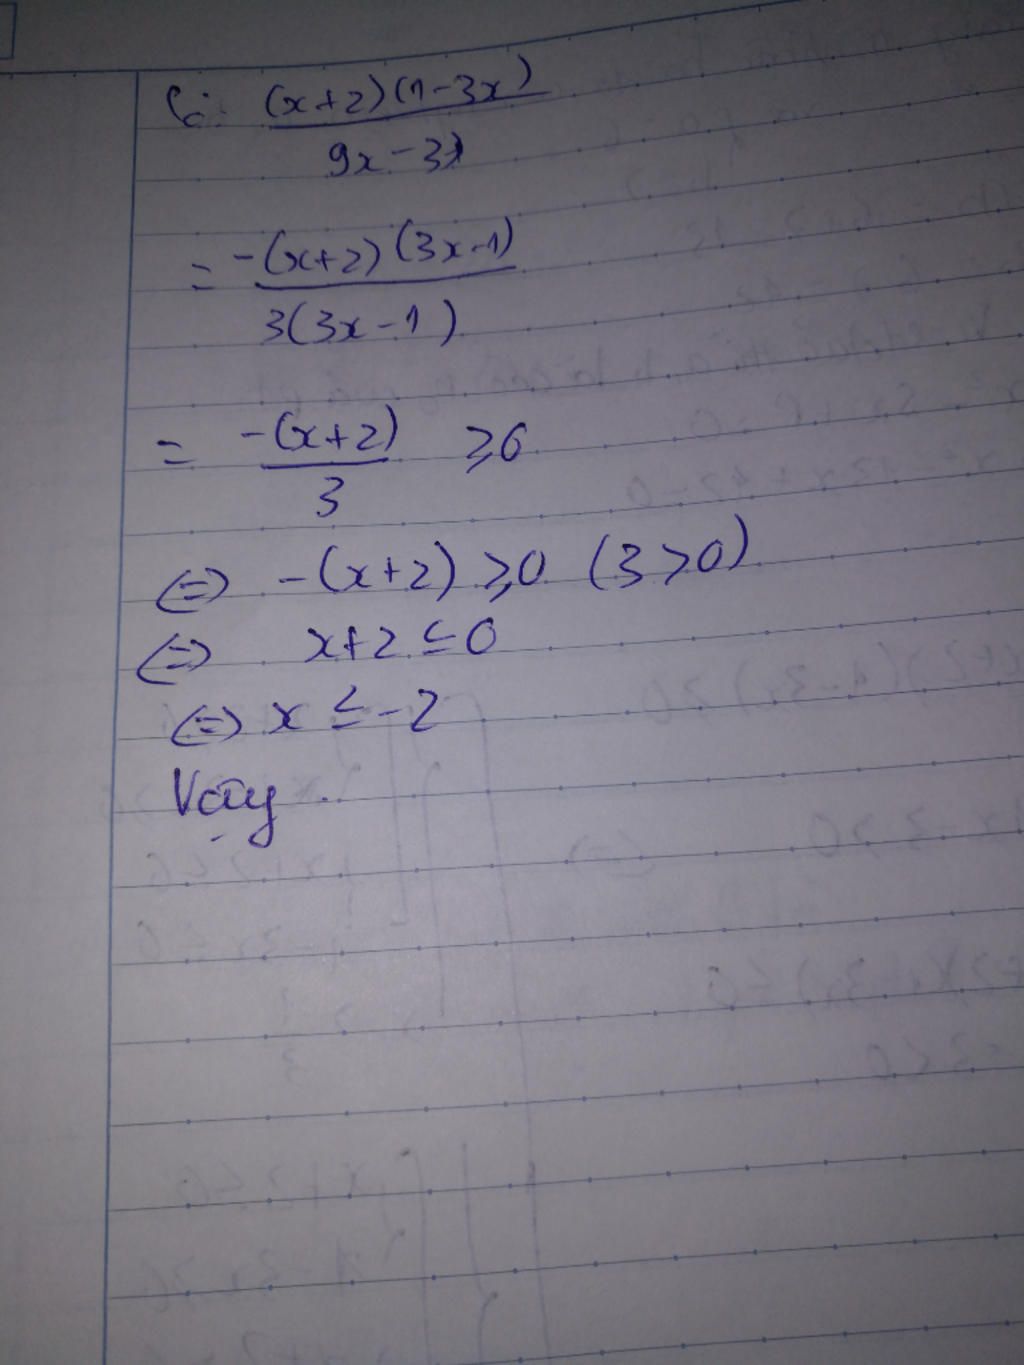 (x+2)(1-3x)
9x-3
= -(x+2)(3x-1)
3(3x-1)
= -(x+2) ≥0
3
⇔ -(x+2) ≥0 (3>0)
⇔ x+2 ≤ 0
⇔ x ≤ -2
Vậy ..